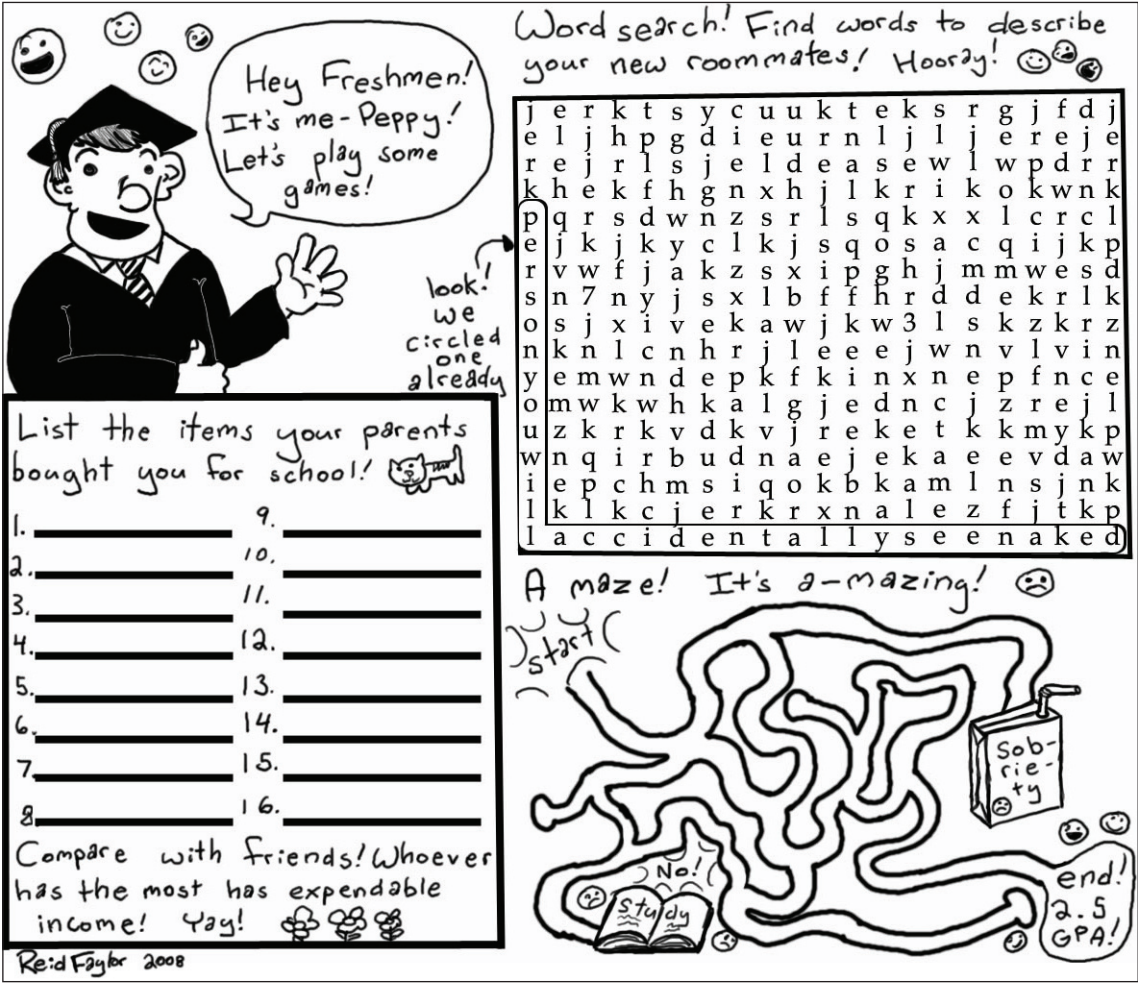 Hey Freshmen!
It's me-Peppy!
Let's play some
games!
Word search! Find words to describe
your new roommates! Hooray!
j e r k t s y c u u k t e k s r g j f d j
e l j h p g d i e u r n l j l j e r e j e
r e j r l s j e l d e a s e w l w p d r r
k h e k f h g n x h j l k r i k o k w n k
p q r s d w n z s r l s q k x x l c r c l
e j k j k y c l k j s q o s a c q i j k p
r v w f j a k z s x i p g h j m m w e s d
s n 7 n y j s x l b f f h r d d e k r l k
o s j x i v e k a w j k w 3 l s k z k r z
n k n l c n h r j l e e e j w n v l v i n
y e m w n d e p k f k i n x n e p f n c e
o m w k w h k a l g j e d n c j z r e j l
u z k r k v d k v j r e k e t k k m y k p
w n q i r b u d n a e j e k a e e v d a w
i e p c h m s i q o k b k a m l n s j n k
l k l k c j e r k r x n a l e z f j t k p
l a c c i d e n t a l l y s e e n a k e d
look!
we
circled
one
already
List the items your parents
bought you for school!
1.
2.
3.
4.
5.
6.
7.
8.
9.
10.
11.
12.
13.
14.
15.
16.
Compare with friends! Whoever
has the most has expendable
income! Yay!
A maze! It's a-mazing!
start
Sob-
rie-
ty
No!
study
end!
2.5
GPA!
Reid Faylor 2008